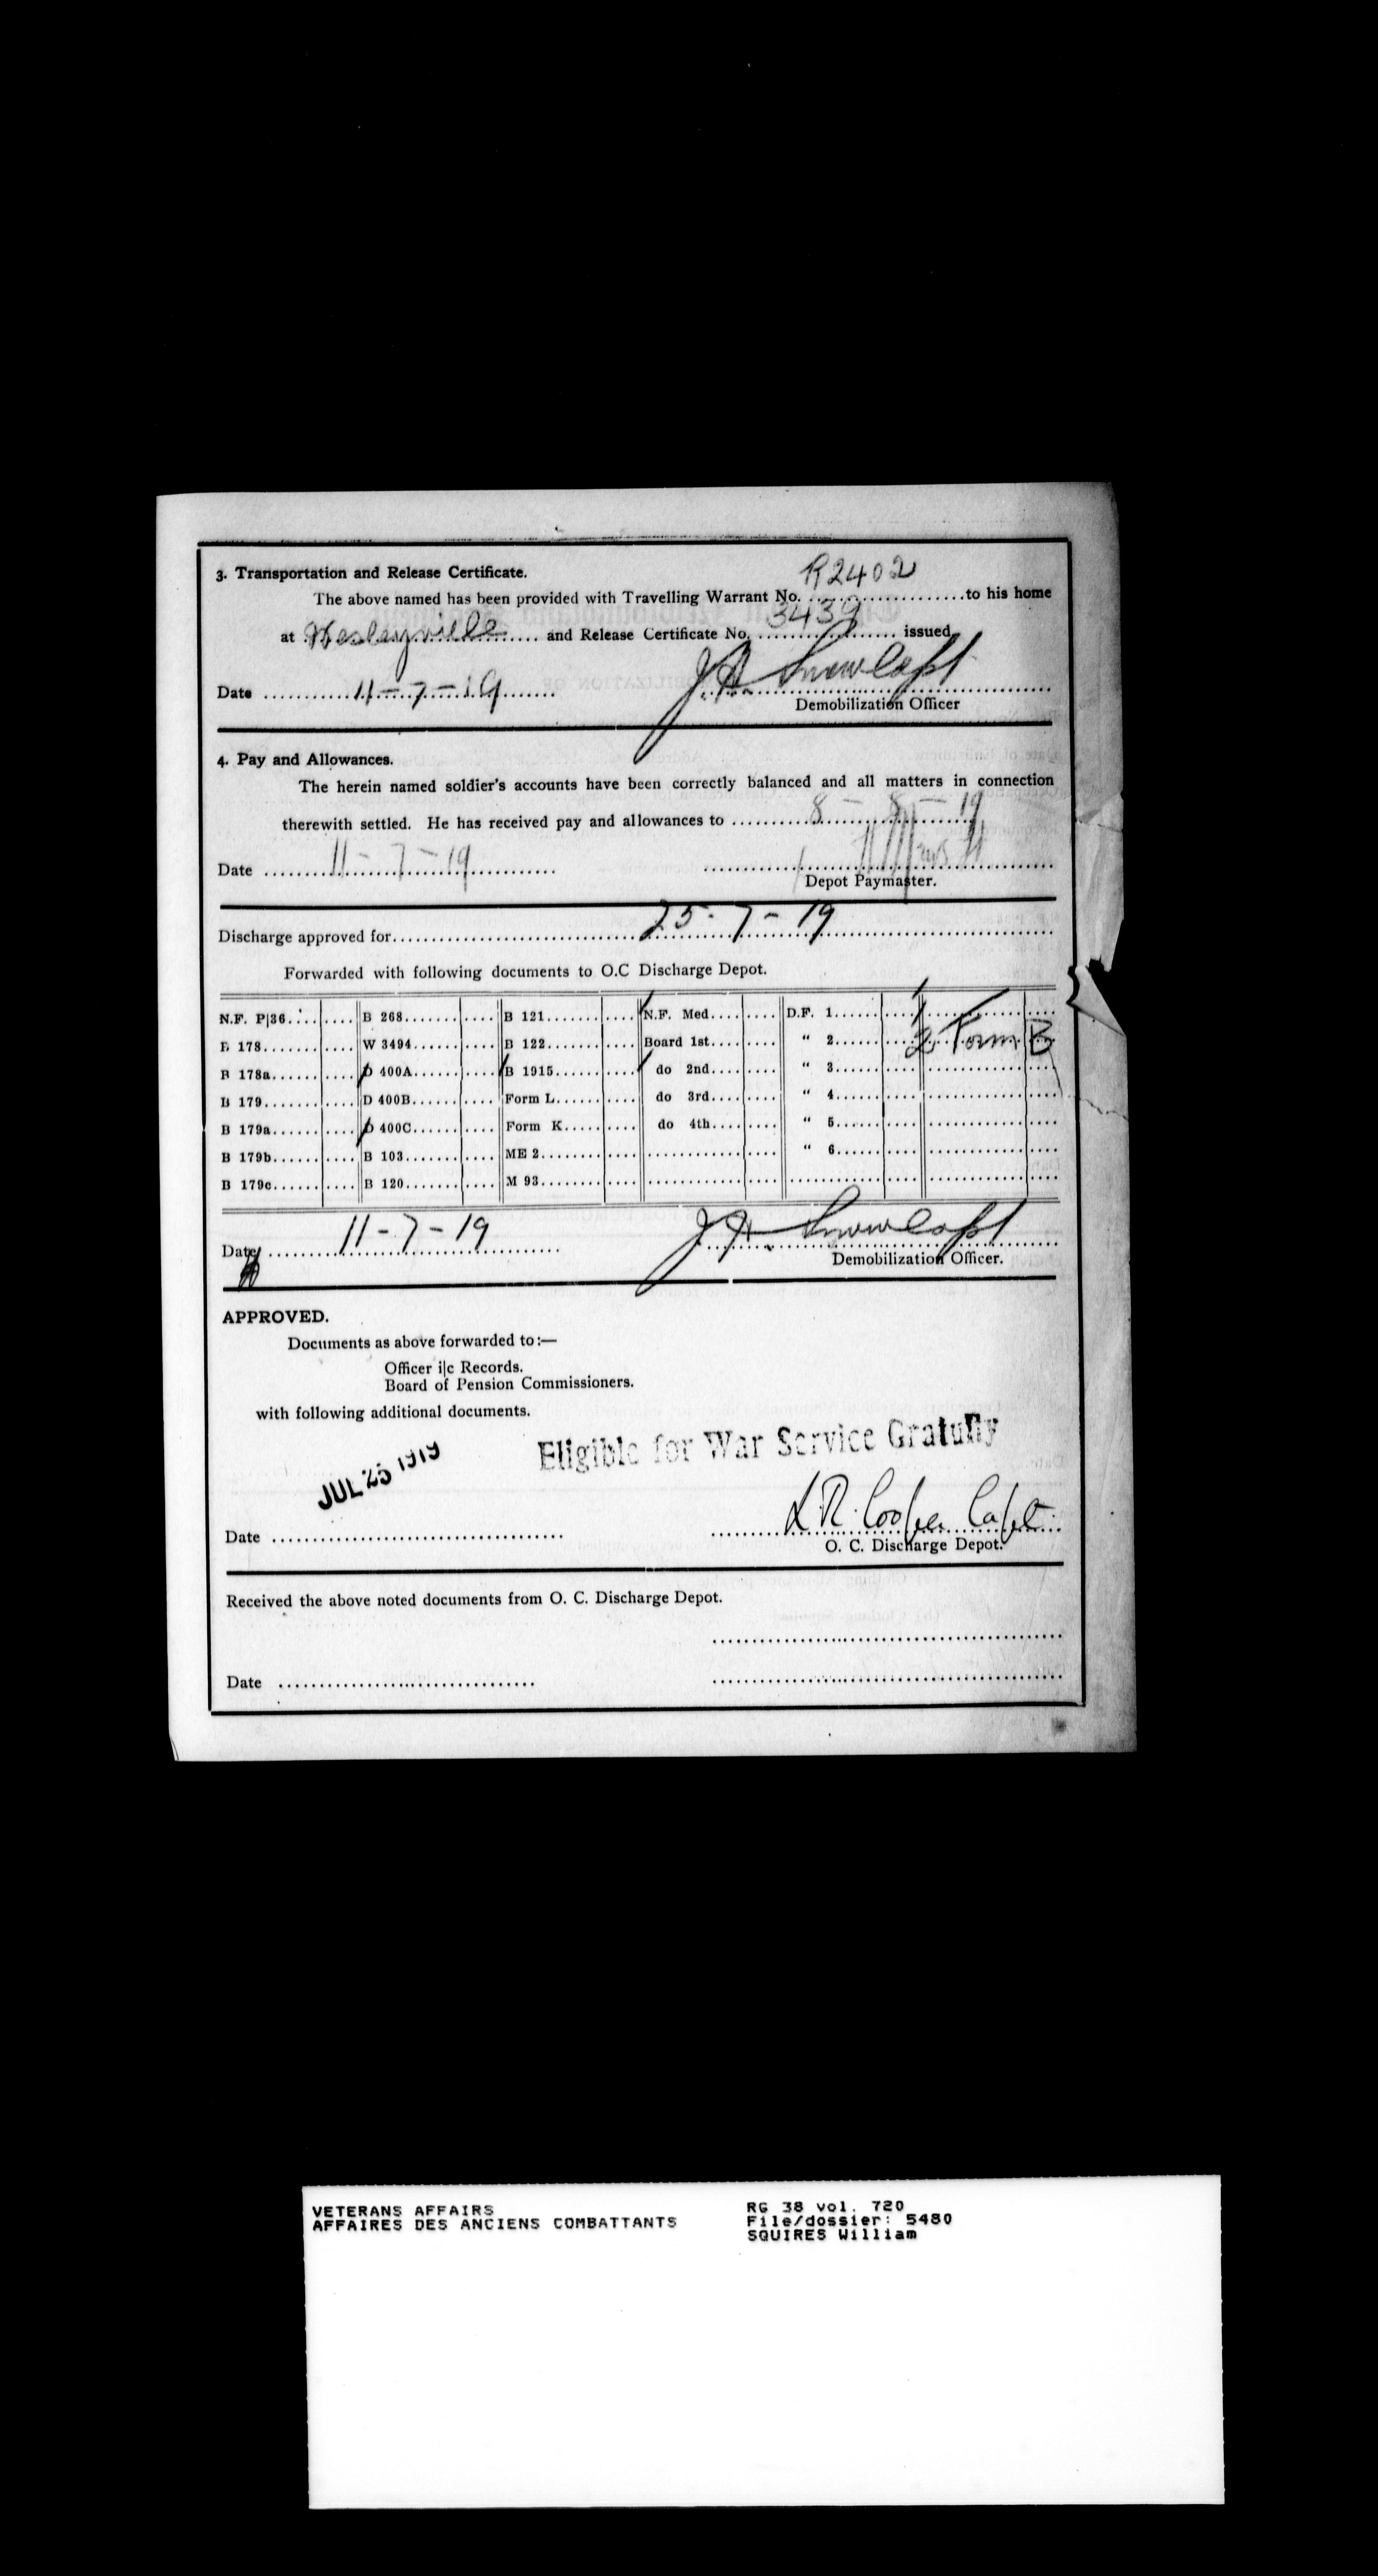 3. Transportation and Release Certificate.
R2402
The above named has been provided with Travelling Warrant No. ....................to his home
3439
at Wesleyville ..... and Release Certificate No. .................. issued
Date ............11-7-19........ J A Snow Capt
Demobilization Officer
4. Pay and Allowances.
The herein named soldier's accounts have been correctly balanced and all matters in connection
therewith settled. He has received pay and allowances to ..........8 - 8 - 19
Date ........11-7-19............
Depot Paymaster.
Discharge approved for................................25-7-19................................
Forwarded with following documents to O.C Discharge Depot.
N.F. P|36 B 268 B 121 N.F. Med. D.F. 1
B 178 W 3494 B 122 Board 1st " 2 2 Form B
B 178a D 400A B 1915 do 2nd " 3
B 179 D 400B Form L do 3rd " 4
B 179a D 400C Form K do 4th " 5
B 179b B 103 ME 2 " 6
B 179c B 120 M 93
Date ........11-7-19............ J A Snow Capt
Demobilization Officer.
APPROVED.
Documents as above forwarded to:—
Officer i|c Records.
Board of Pension Commissioners.
with following additional documents.
Eligible for War Service Gratuity
JUL 25 1919
Date .................................... L R Cooper Capt.
O. C. Discharge Depot.
Received the above noted documents from O. C. Discharge Depot.
Date ................................
VETERANS AFFAIRS RG 38 vol. 720
AFFAIRES DES ANCIENS COMBATTANTS File/dossier: 5480
SQUIRES William